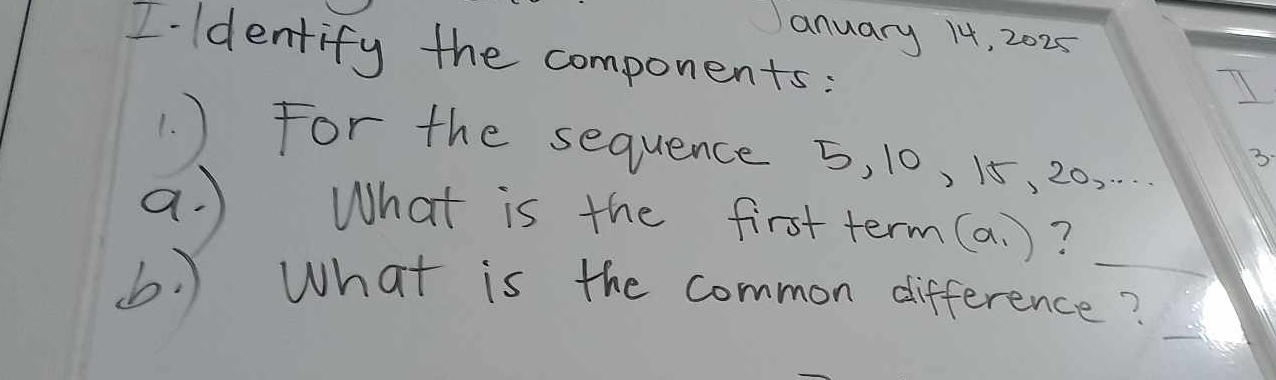 January 14, 2025
I-Identify the components:
1.) For the sequence 5, 10, 15, 20,....
a.) What is the first term (a₁)? ___
b.) What is the common difference? _
II
3-